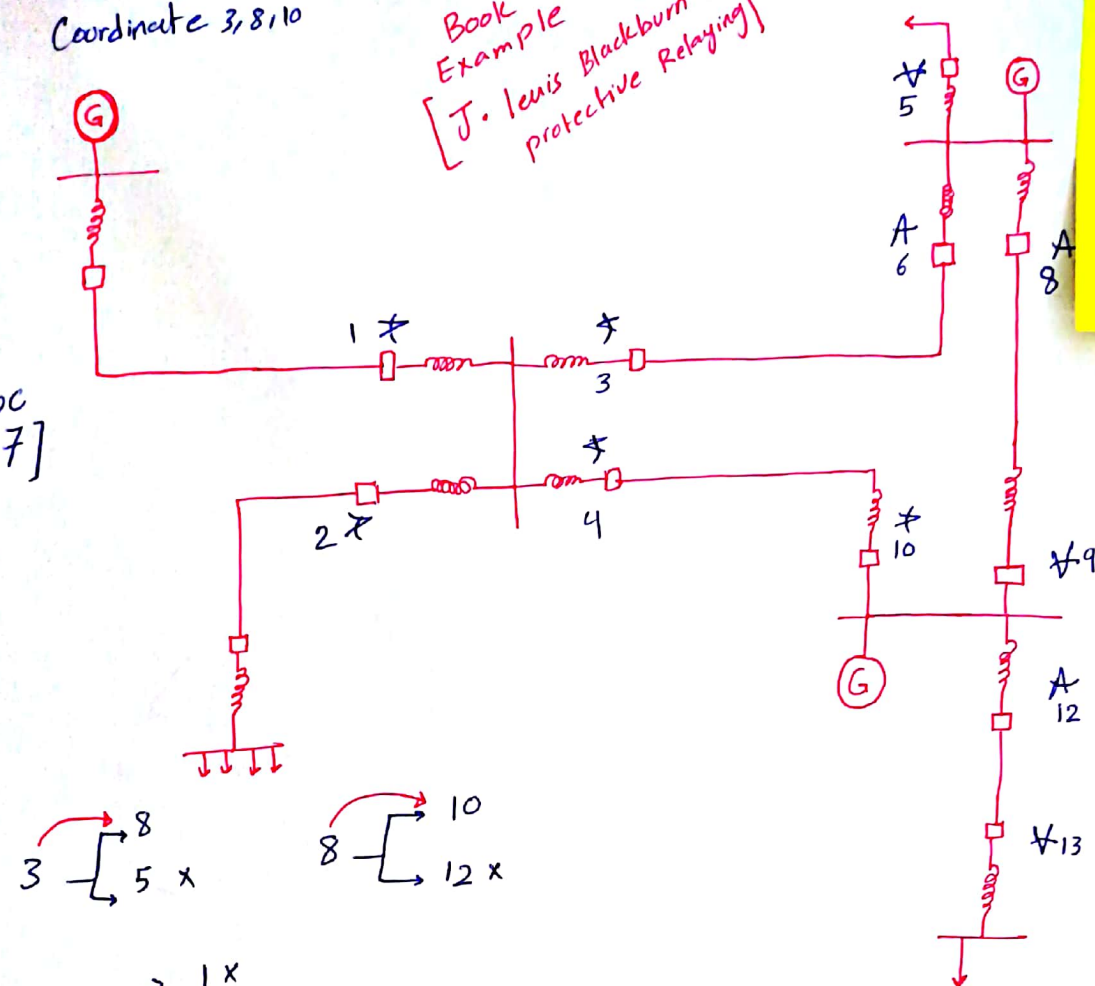 Coordinate 3,8,10
Book
Example
[J. leuis Blackburn
protective Relaying]
G
G
5
6
A
8
A
1
3
OC
7]
2
4
10
9
G
A
12
13
3
8
5 x
8
10
12 x
1 x